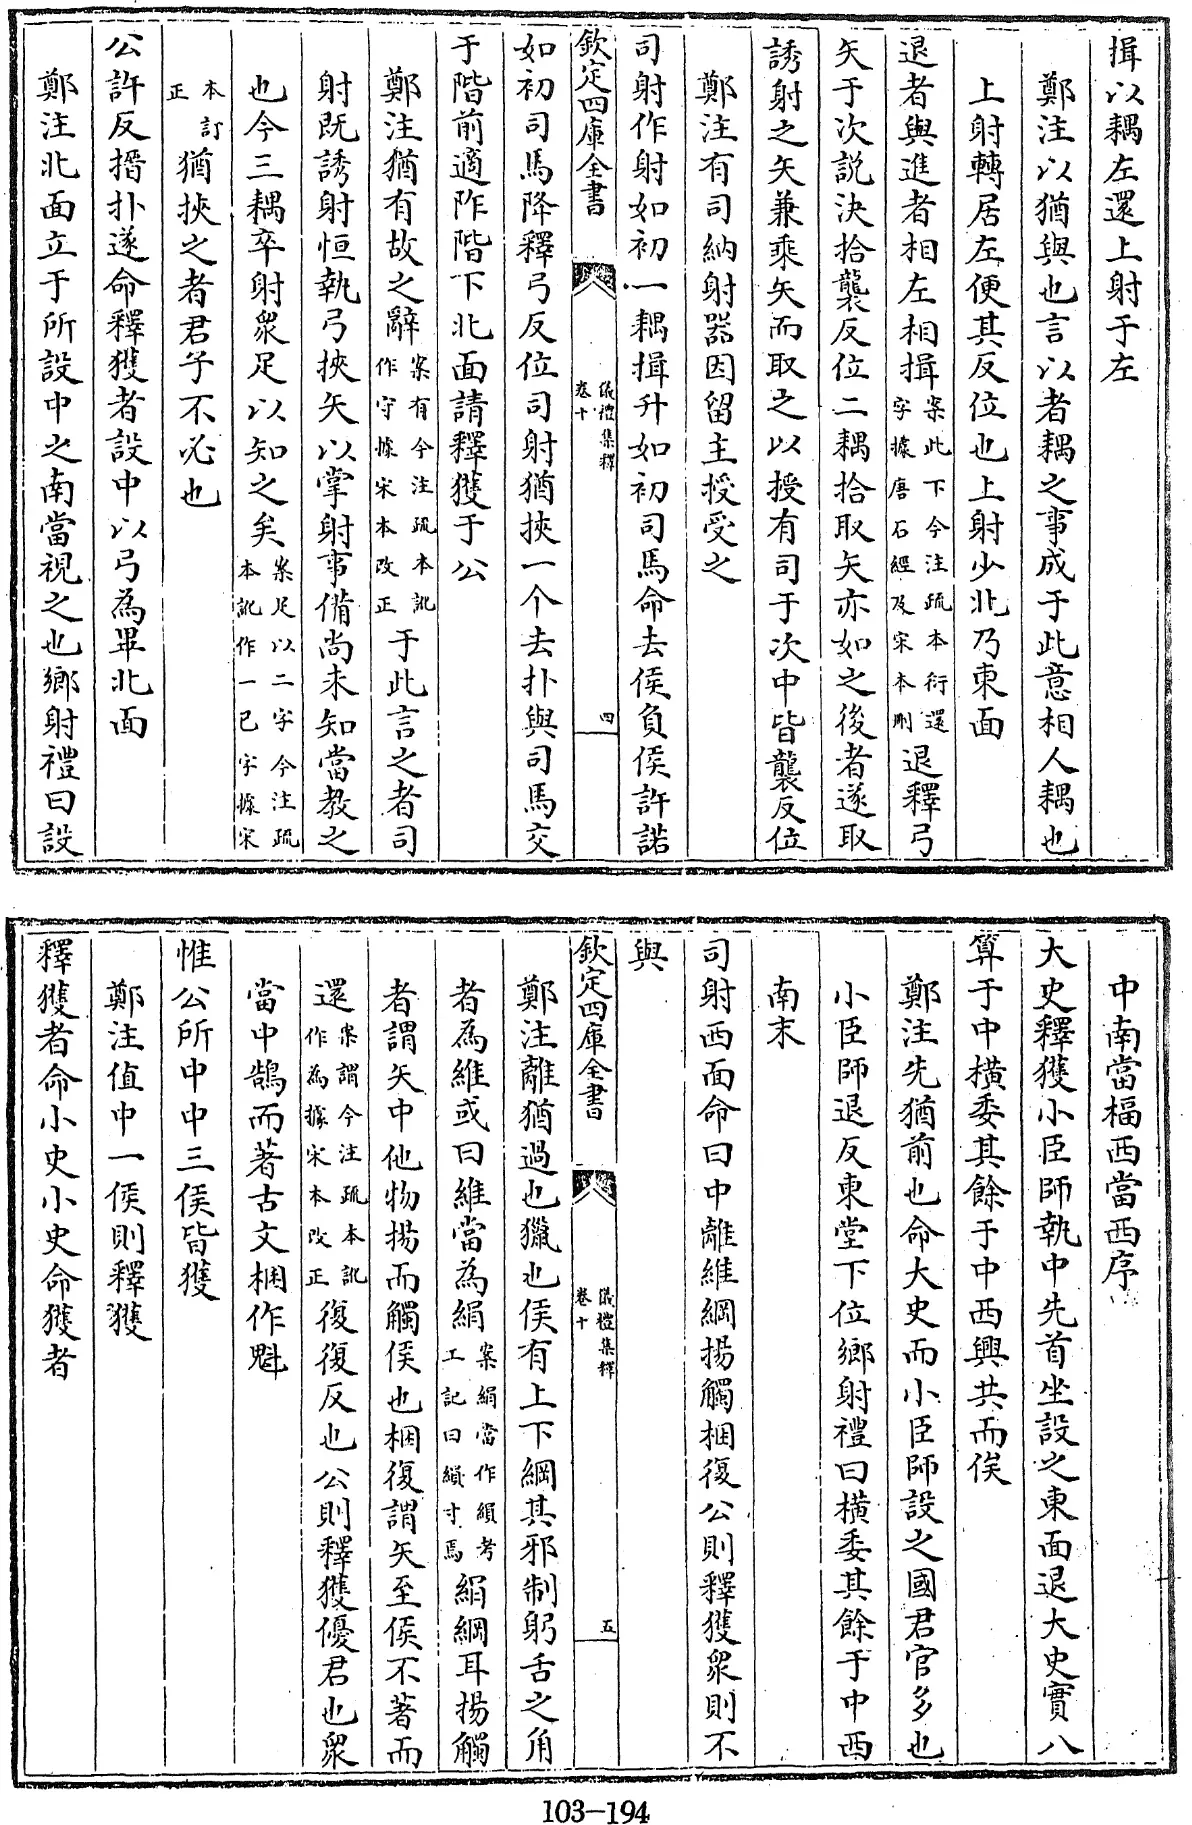 揖以耦左還上射于左
鄭注以猶與也言以者耦之事成于此意相人耦也
上射轉居左便其反位也上射少北乃東面
退者與進者相左相揖案此下今注疏本衍還字據唐石經及宋本刪退釋弓
矢于次説決拾襲反位二耦拾取矢亦如之後者遂取
誘射之矢兼乘矢而取之以授有司于次中皆襲反位
鄭注有司納射器因留主授受之
司射作射如初一耦揖升如初司馬命去侯負侯許諾
欽定四庫全書
儀禮集釋
卷十
四
如初司馬降釋弓反位司射猶挾一个去扑與司馬交
于階前適阼階下北面請釋獲于公
鄭注猶有故之辭案有今注疏本訛作守據宋本改正于此言之者司
射既誘射恒執弓挾矢以掌射事備尚未知當教之
也今三耦卒射衆足以知之矣案足以二字今注疏本訛作一已字據宋
本訂正猶挾之者君子不必也
公許反搢扑遂命釋獲者設中以弓為畢北面
鄭注北面立于所設中之南當視之也鄉射禮曰設
中南當楅西當西序
大史釋獲小臣師執中先首坐設之東面退大史實八
算于中横委其餘于中西興共而俟
鄭注先猶前也命大史而小臣師設之國君官多也
小臣師退反東堂下位鄉射禮曰横委其餘于中西
南末
司射西面命曰中離維綱揚觸梱復公則釋獲衆則不
與
欽定四庫全書
儀禮集釋
卷十
五
鄭注離猶過也獵也侯有上下綱其邪制躬舌之角
者為維或曰維當為絹案絹當作縜考工記曰縜寸焉絹綱耳揚觸
者謂矢中他物揚而觸侯也梱復謂矢至侯不著而
還案謂今注疏本訛作為據宋本改正復復反也公則釋獲優君也衆
當中鵠而著古文梱作魁
惟公所中中三侯皆獲
鄭注值中一侯則釋獲
釋獲者命小史小史命獲者
103-194